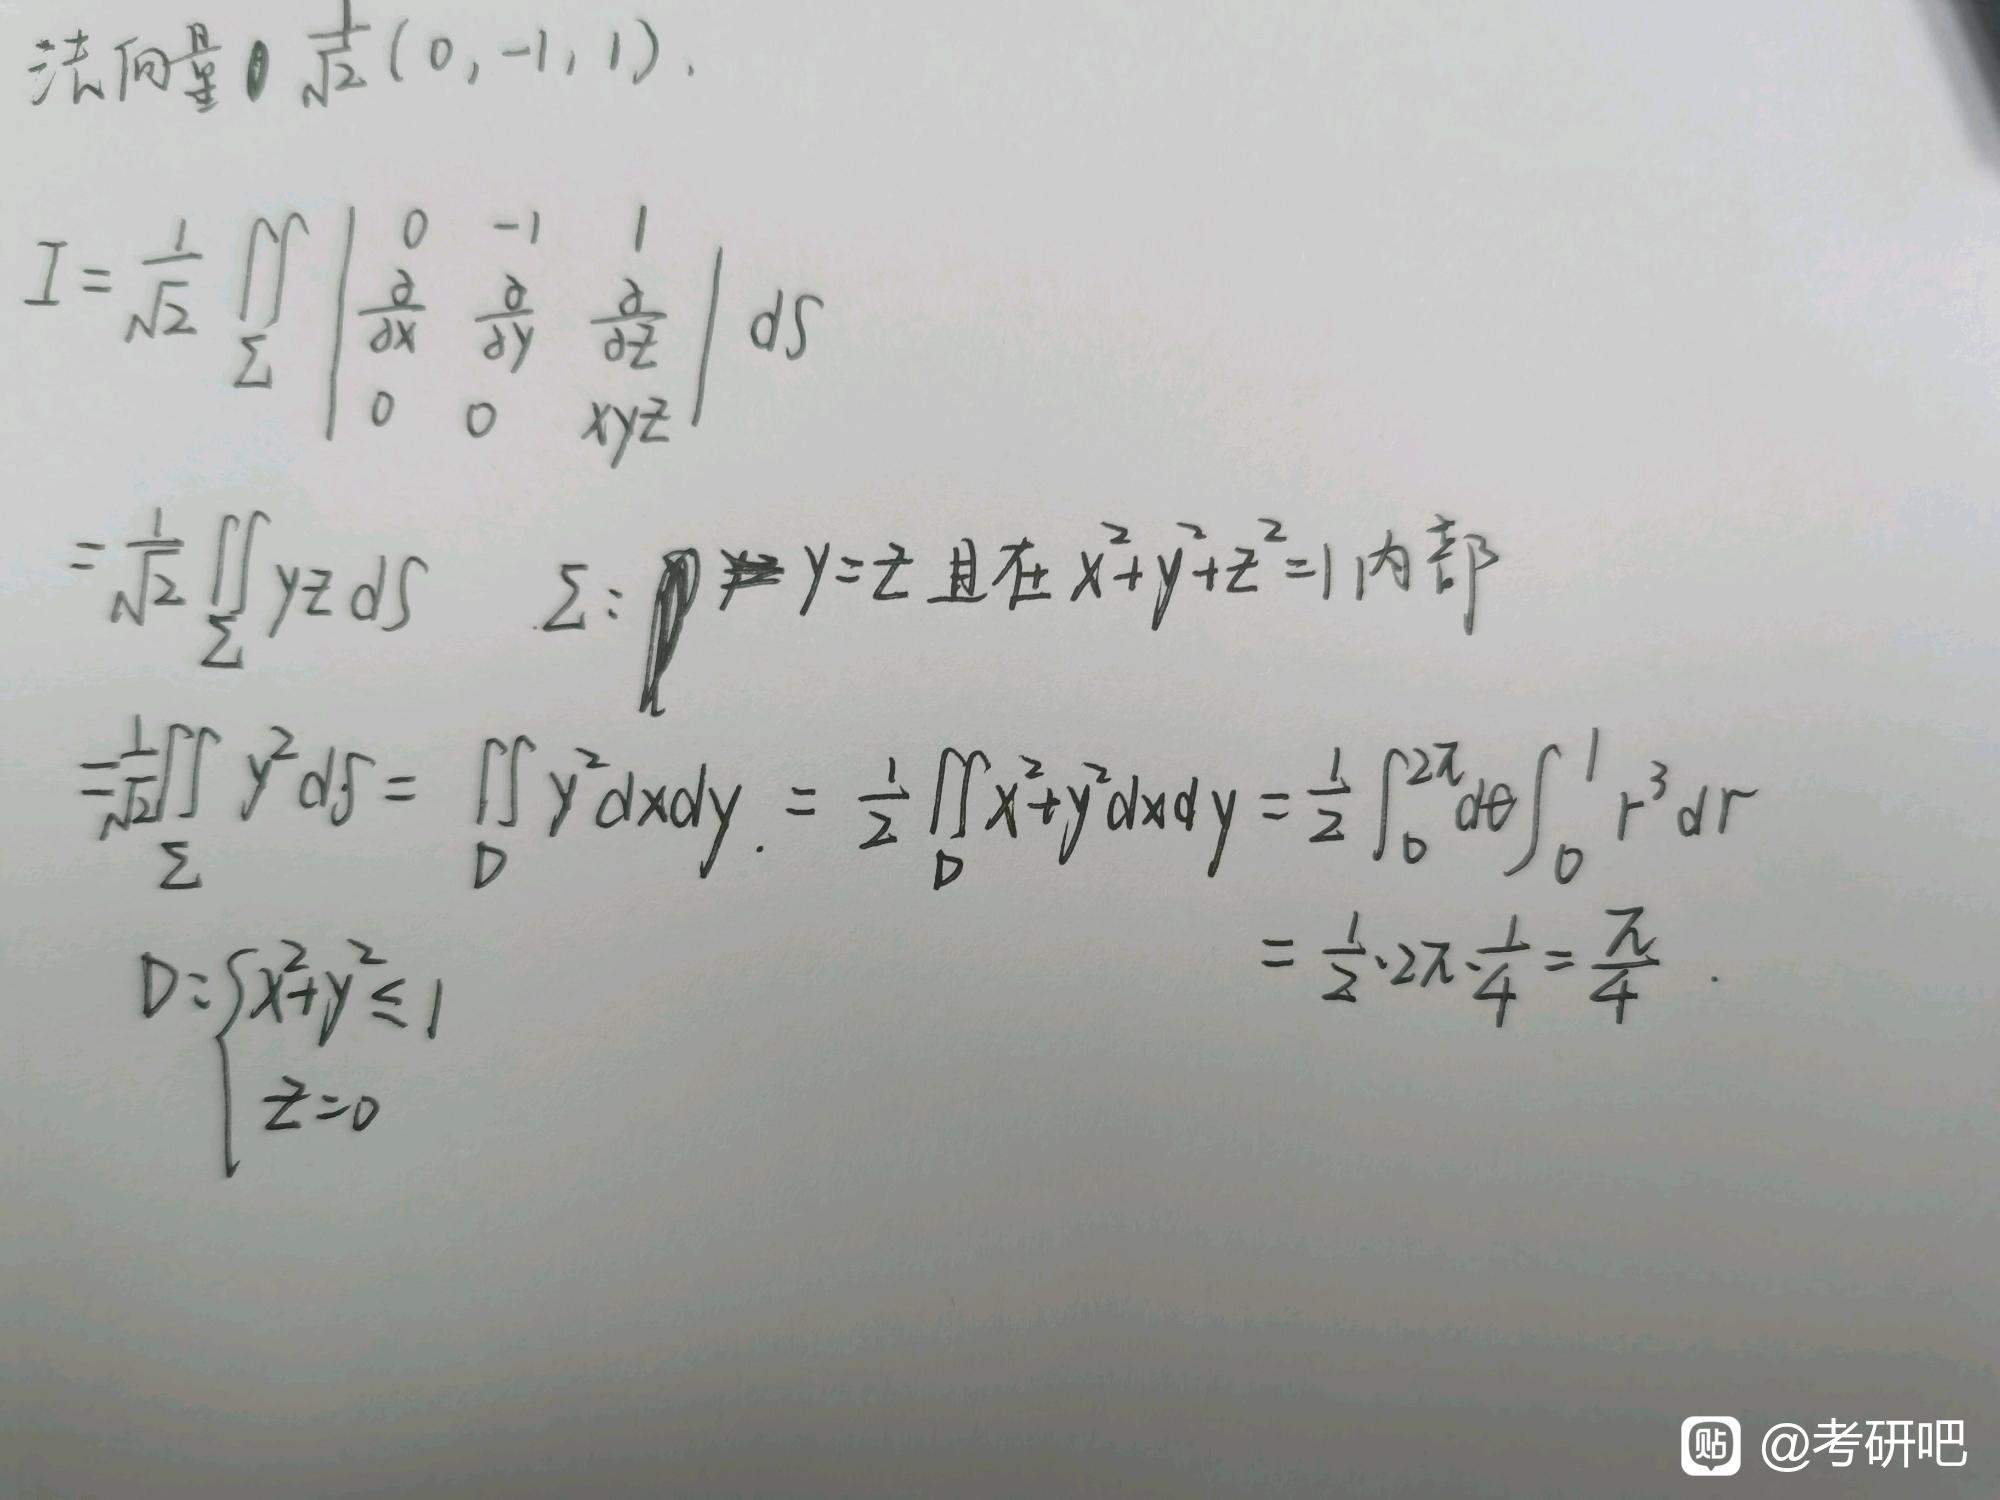 法向量 1/√2 (0, -1, 1).
I = 1/√2 ∬_Σ | 0 -1 1 ; ∂/∂x ∂/∂y ∂/∂z ; 0 0 xyz | dS
= 1/√2 ∬_Σ yz dS Σ: y=z 且在 x²+y²+z²=1 内部
= 1/√2 ∬_Σ y² dS = ∬_D y² dxdy. = 1/2 ∬_D x²+y² dxdy = 1/2 ∫₀^2π dθ ∫₀^1 r³ dr
= 1/2 · 2π · 1/4 = π/4 .
D: { x²+y² ≤ 1
z=0
贴 @考研吧